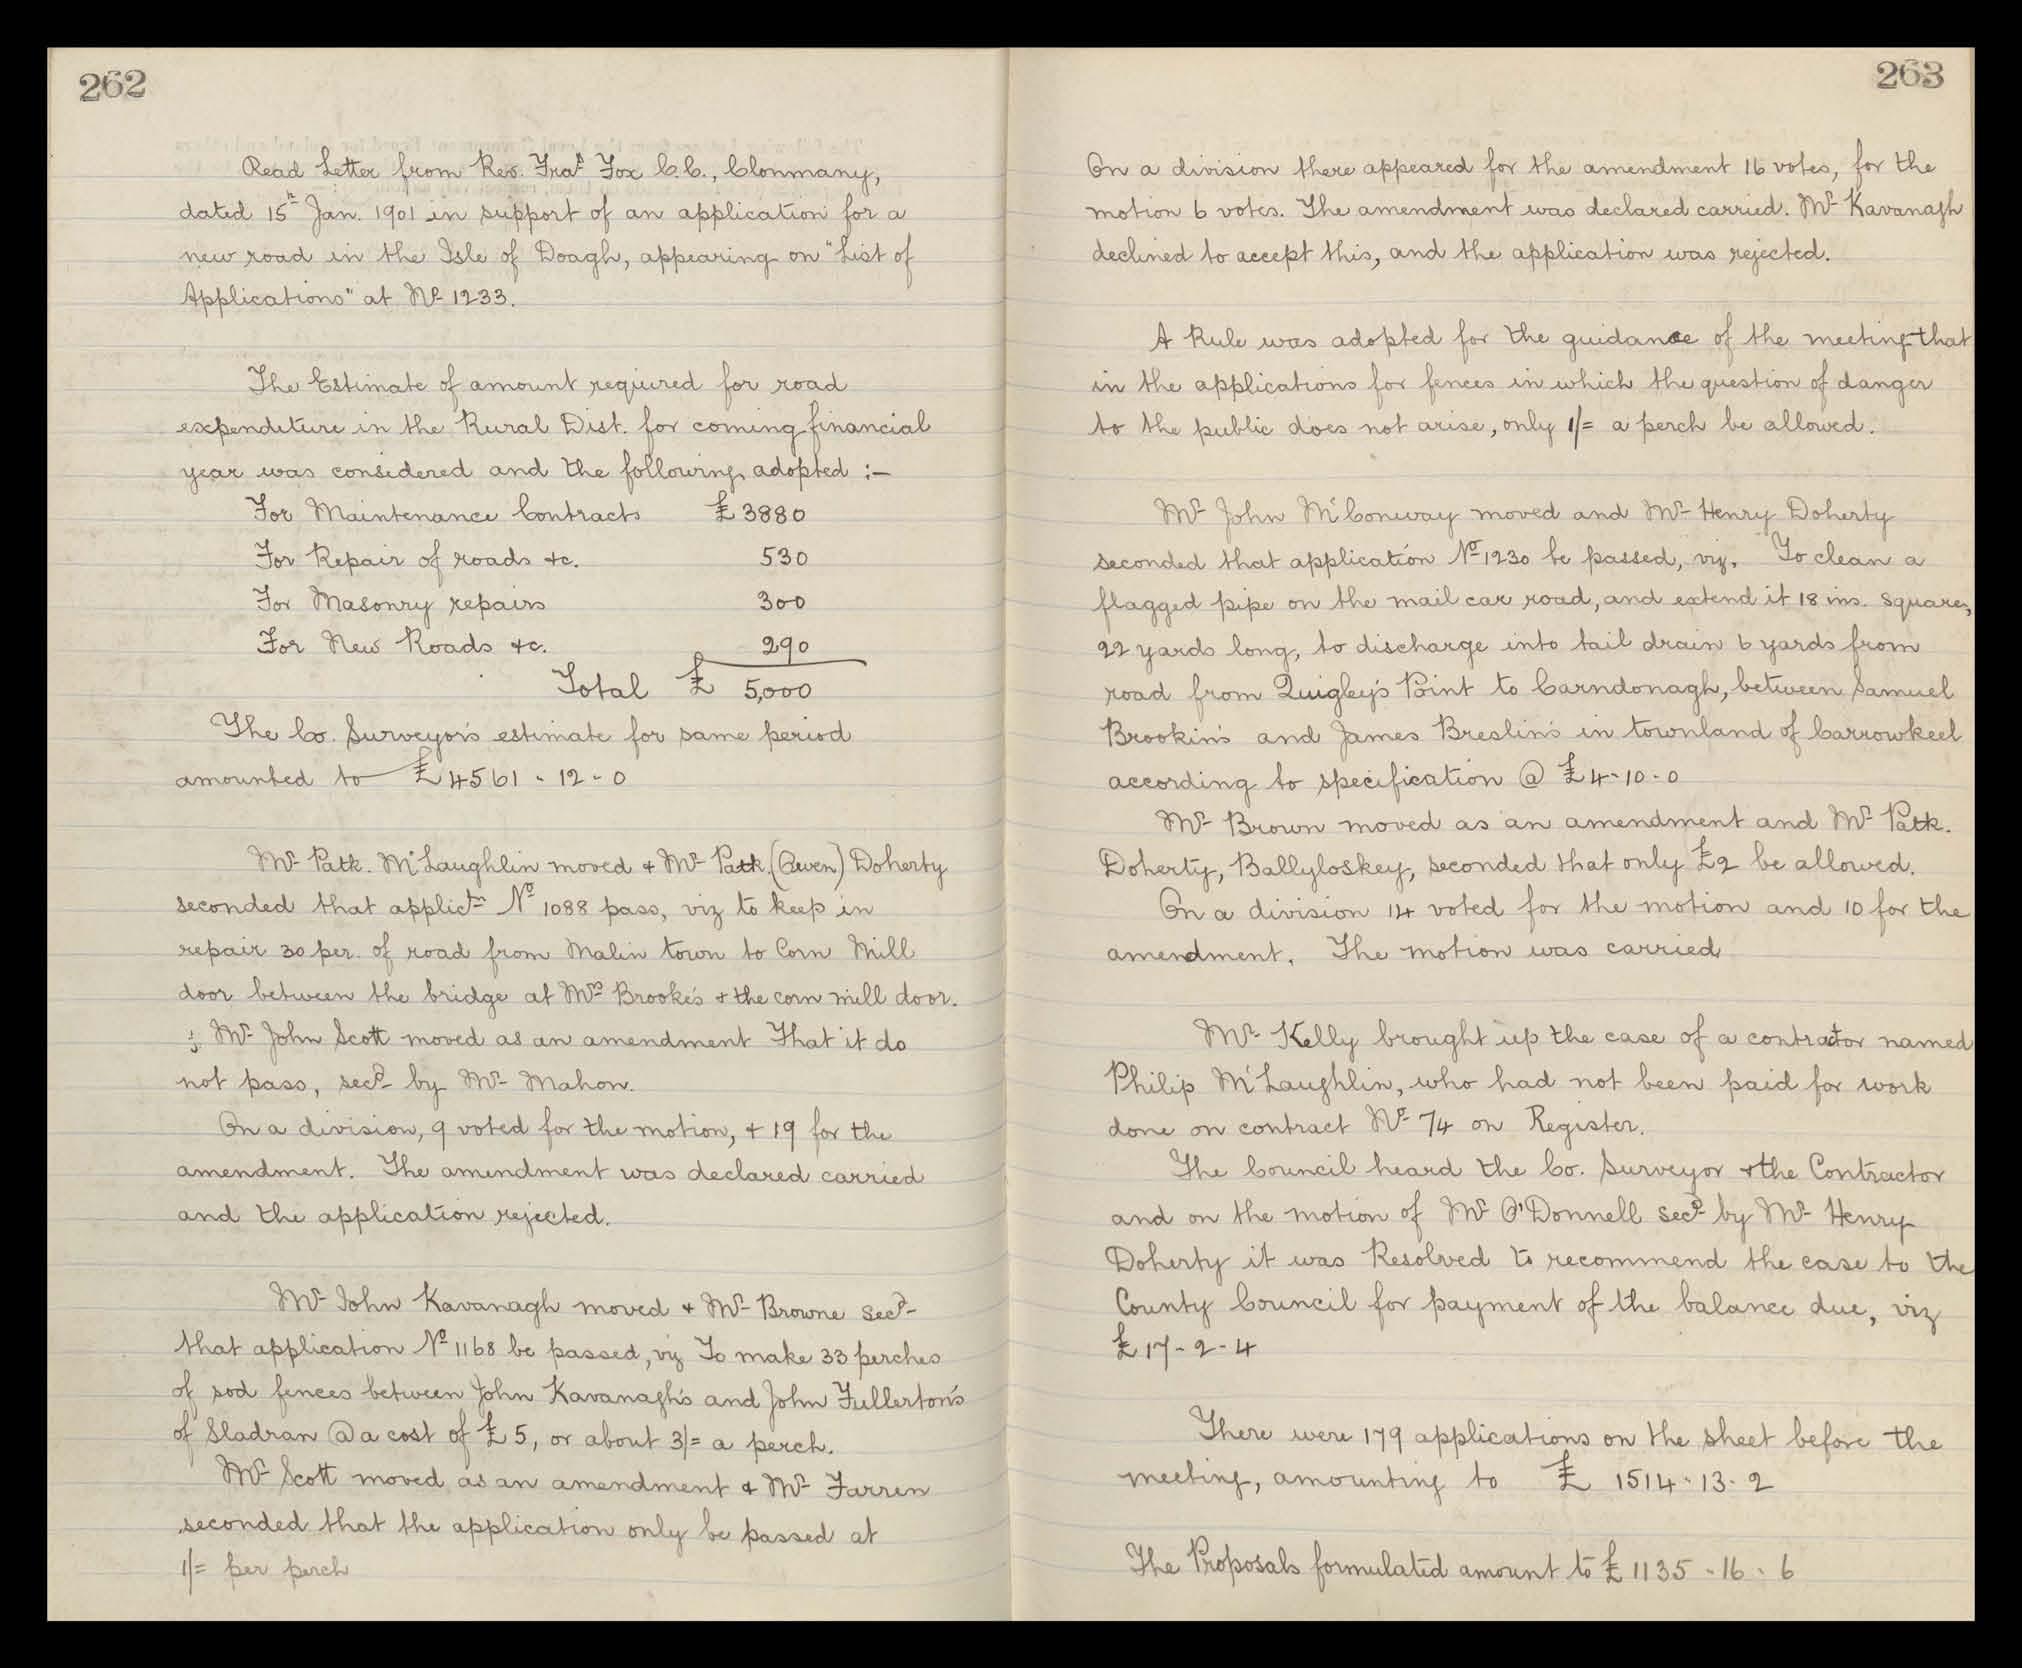 262
Read Letter from Rev. Fras Fox C.C., Clonmany,
dated 15th Jan. 1901 in support of an application for a
new road in the Isle of Doagh, appearing on "List of
Applications" at No 1233.
The Estimate of amount required for road
expenditure in the Rural Dist. for coming financial
year was considered and the following adopted :-
For Maintenance Contracts £3880
For Repair of roads &c. 530
For Masonry repairs 300
For New Roads &c. 290
Total £ 5,000
The Co. Surveyor's estimate for same period
amounted to £4561 - 12 - 0
Mr Patk. McLaughlin moved & Mr Patk. (Owen) Doherty
seconded that applictn No 1088 pass, viz to keep in
repair 30 per. of road from Malin town to Corn Mill
door between the bridge at Mrs Brooke's & the corn mill door.
Mr John Scott moved as an amendment That it do
not pass, secd by Mr Mahon.
On a division, 9 voted for the motion, & 19 for the
amendment. The amendment was declared carried
and the application rejected.
Mr John Kavanagh moved & Mr Browne secd
that application No 1168 be passed, viz To make 33 perches
of sod fences between John Kavanagh's and John Fullerton's
of Sladran @ a cost of £5, or about 3/= a perch.
Mr Scott moved as an amendment & Mr Farren
seconded that the application only be passed at
1/= per perch
263
On a division there appeared for the amendment 16 votes, for the
motion 6 votes. The amendment was declared carried. Mr Kavanagh
declined to accept this, and the application was rejected.
A Rule was adopted for the guidance of the meeting that
in the applications for fences in which the question of danger
to the public does not arise, only 1/= a perch be allowed.
Mr John McConway moved and Mr Henry Doherty
seconded that application No 1230 be passed, viz. To clean a
flagged pipe on the mail car road, and extend it 18 ins. square,
22 yards long, to discharge into tail drain 6 yards from
road from Quigley's Point to Carndonagh, between Samuel
Brookin's and James Breslin's in townland of Carrowkeel
according to specification @ £4-10-0
Mr Brown moved as an amendment and Mr Patk.
Doherty, Ballyloskey, seconded that only £2 be allowed.
On a division 14 voted for the motion and 10 for the
amendment. The motion was carried
Mr Kelly brought up the case of a contractor named
Philip McLaughlin, who had not been paid for work
done on contract No 74 on Register.
The Council heard the Co. Surveyor & the Contractor
and on the motion of Mr O'Donnell secd by Mr Henry
Doherty it was Resolved to recommend the case to the
County Council for payment of the balance due, viz
£17-2-4
There were 179 applications on the sheet before the
meeting, amounting to £ 1514-13-2
The Proposals formulated amount to £1135-16-6